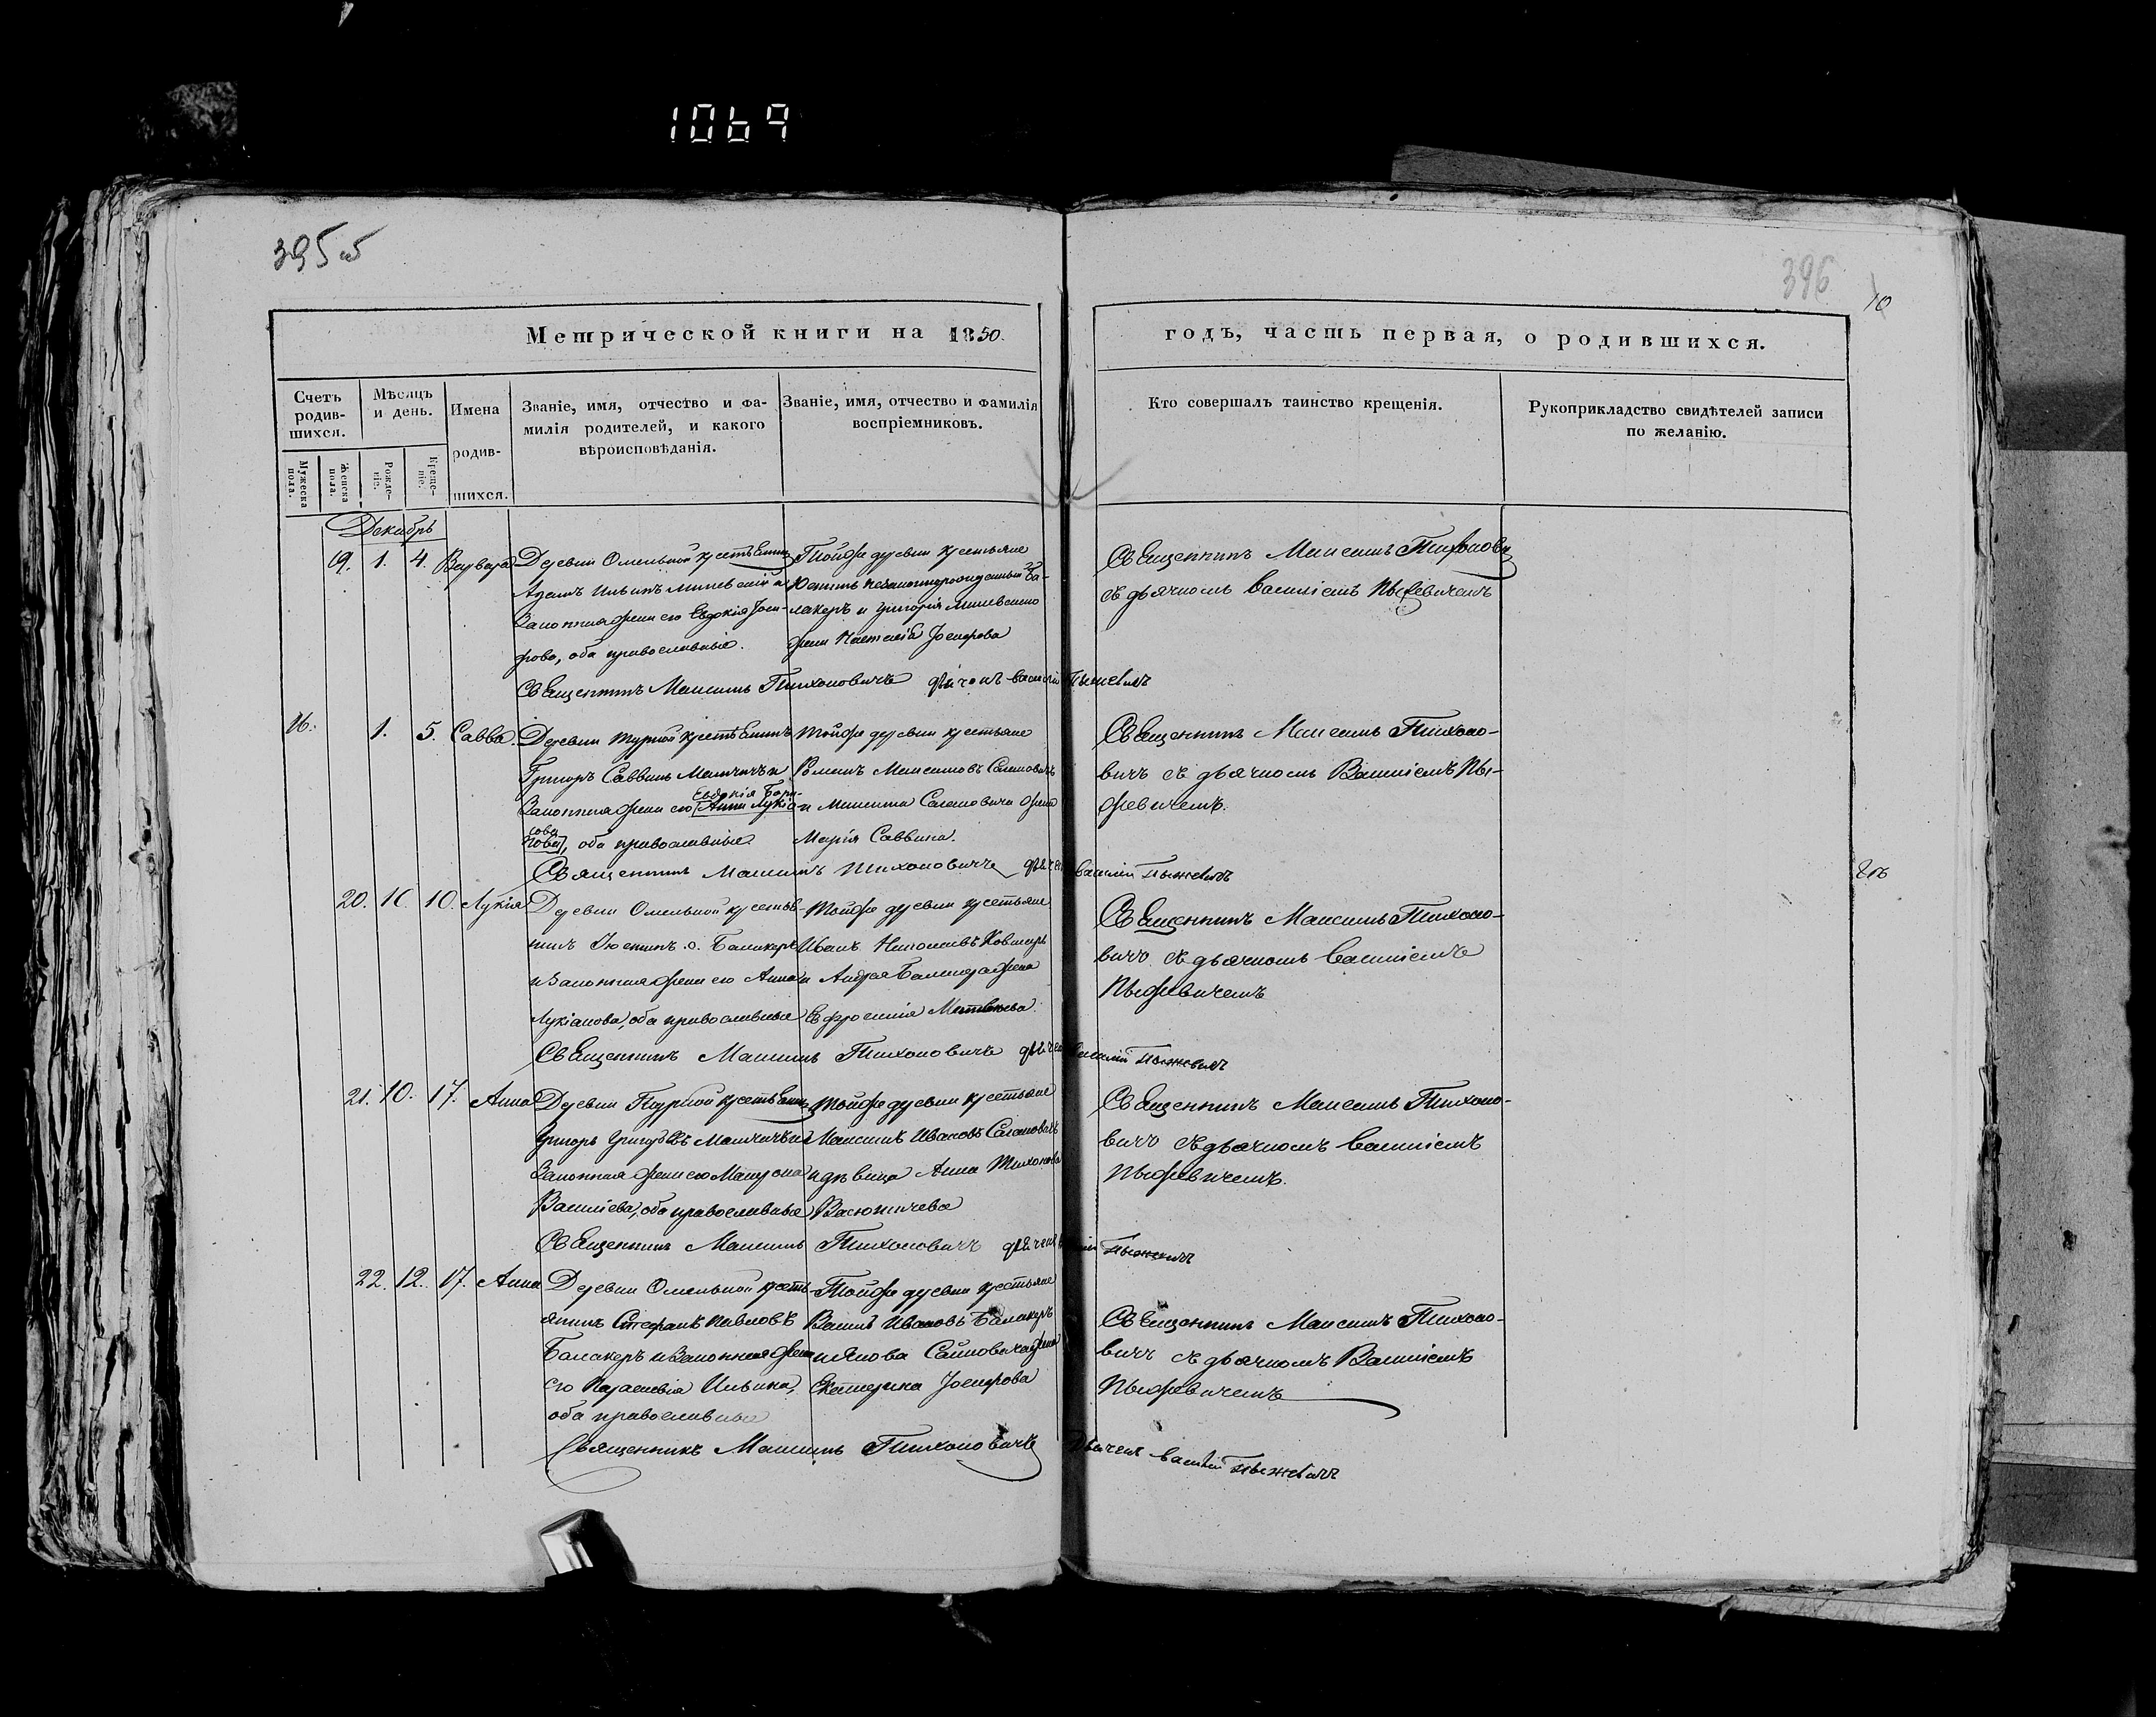 1069
395 об
396
10
Метрической книги на 1850.
годъ, часть первая, о родившихся.
Счетъ родившихся.
Мѣсяцъ и день.
Имена родившихся.
Званіе, имя, отчество и фамилія родителей, и какого вѣроисповѣданія.
Званіе, имя, отчество и фамилія воспріемниковъ.
Кто совершалъ таинство крещенія.
Рукоприкладство свидѣтелей записи по желанію.
Мужеска пола.
Женска пола.
Рожденіе.
Крещеніе.
Декабрь
19. 1. 4. Варвара
Деревни Омельной крестьянинъ
законная жена его Евдокія Іоси-
фова, оба православные.
Тойже деревни крестьяне
Юстинъ незаконнорожденный Ба-
лакеръ и Григорія
жена Наталія Іосифова
Священникъ Максимъ Тихоновичъ
с дьячкомъ Василіемъ Пыжевичемъ
Священникъ Максимъ Тихоновичъ дьячекъ Василій Пыжевичъ
16. 1. 5. Савва.
Деревни Турной крестьянинъ
Григоръ Саввинъ
Законная жена его Анна Лукіа-
Евдокія Бори-
сова
нова, оба православные
Тойже деревни крестьяне
Романъ Максимовъ
и Максима жена
Марія Саввина.
Священникъ Максимъ Тихоно-
вичъ с дьячкомъ Василіемъ Пы-
жевичемъ.
Священникъ Максимъ Тихоновичъ дьячекъ Василій Пыжевичъ
20. 10. Лукія
Деревни Омельной крестья-
нинъ Юстинъ Балакеръ
и законная жена его Анна
Лукіанова, оба православные
Тойже деревни крестьяне
Иванъ Николаевъ
и Андрея Балакера жена
Ефросинія
Священникъ Максимъ Тихоно-
вичъ с дьячкомъ Василіемъ
Пыжевичемъ
Священникъ Максимъ Тихоновичъ дьячекъ Василій Пыжевичъ
21. 10. 17. Анна
Деревни Турной крестьянинъ
Григоръ
Законная жена его
Василіева, оба православные
Тойже деревни крестьяне
Максимъ Ивановъ
и дѣвица Анна Тихонова
Священникъ Максимъ Тихоно-
вичъ с дьячкомъ Василіемъ
Пыжевичемъ.
Священникъ Максимъ Тихоновичъ дьячекъ Пыжевичъ
22. 12. 17. Анна
Деревни Омельной кресть-
янинъ Стефанъ Павловъ
Балакеръ и законная жена
его Параскевія Ильина,
оба православные
Тойже деревни крестьяне
Иванова Балакеръ
и Якова жена
Екатерина Іосифова
Священникъ Максимъ Тихоно-
вичъ с дьячкомъ Василіемъ
Пыжевичемъ
Священникъ Максимъ Тихоновичъ дьячекъ Василій Пыжевичъ